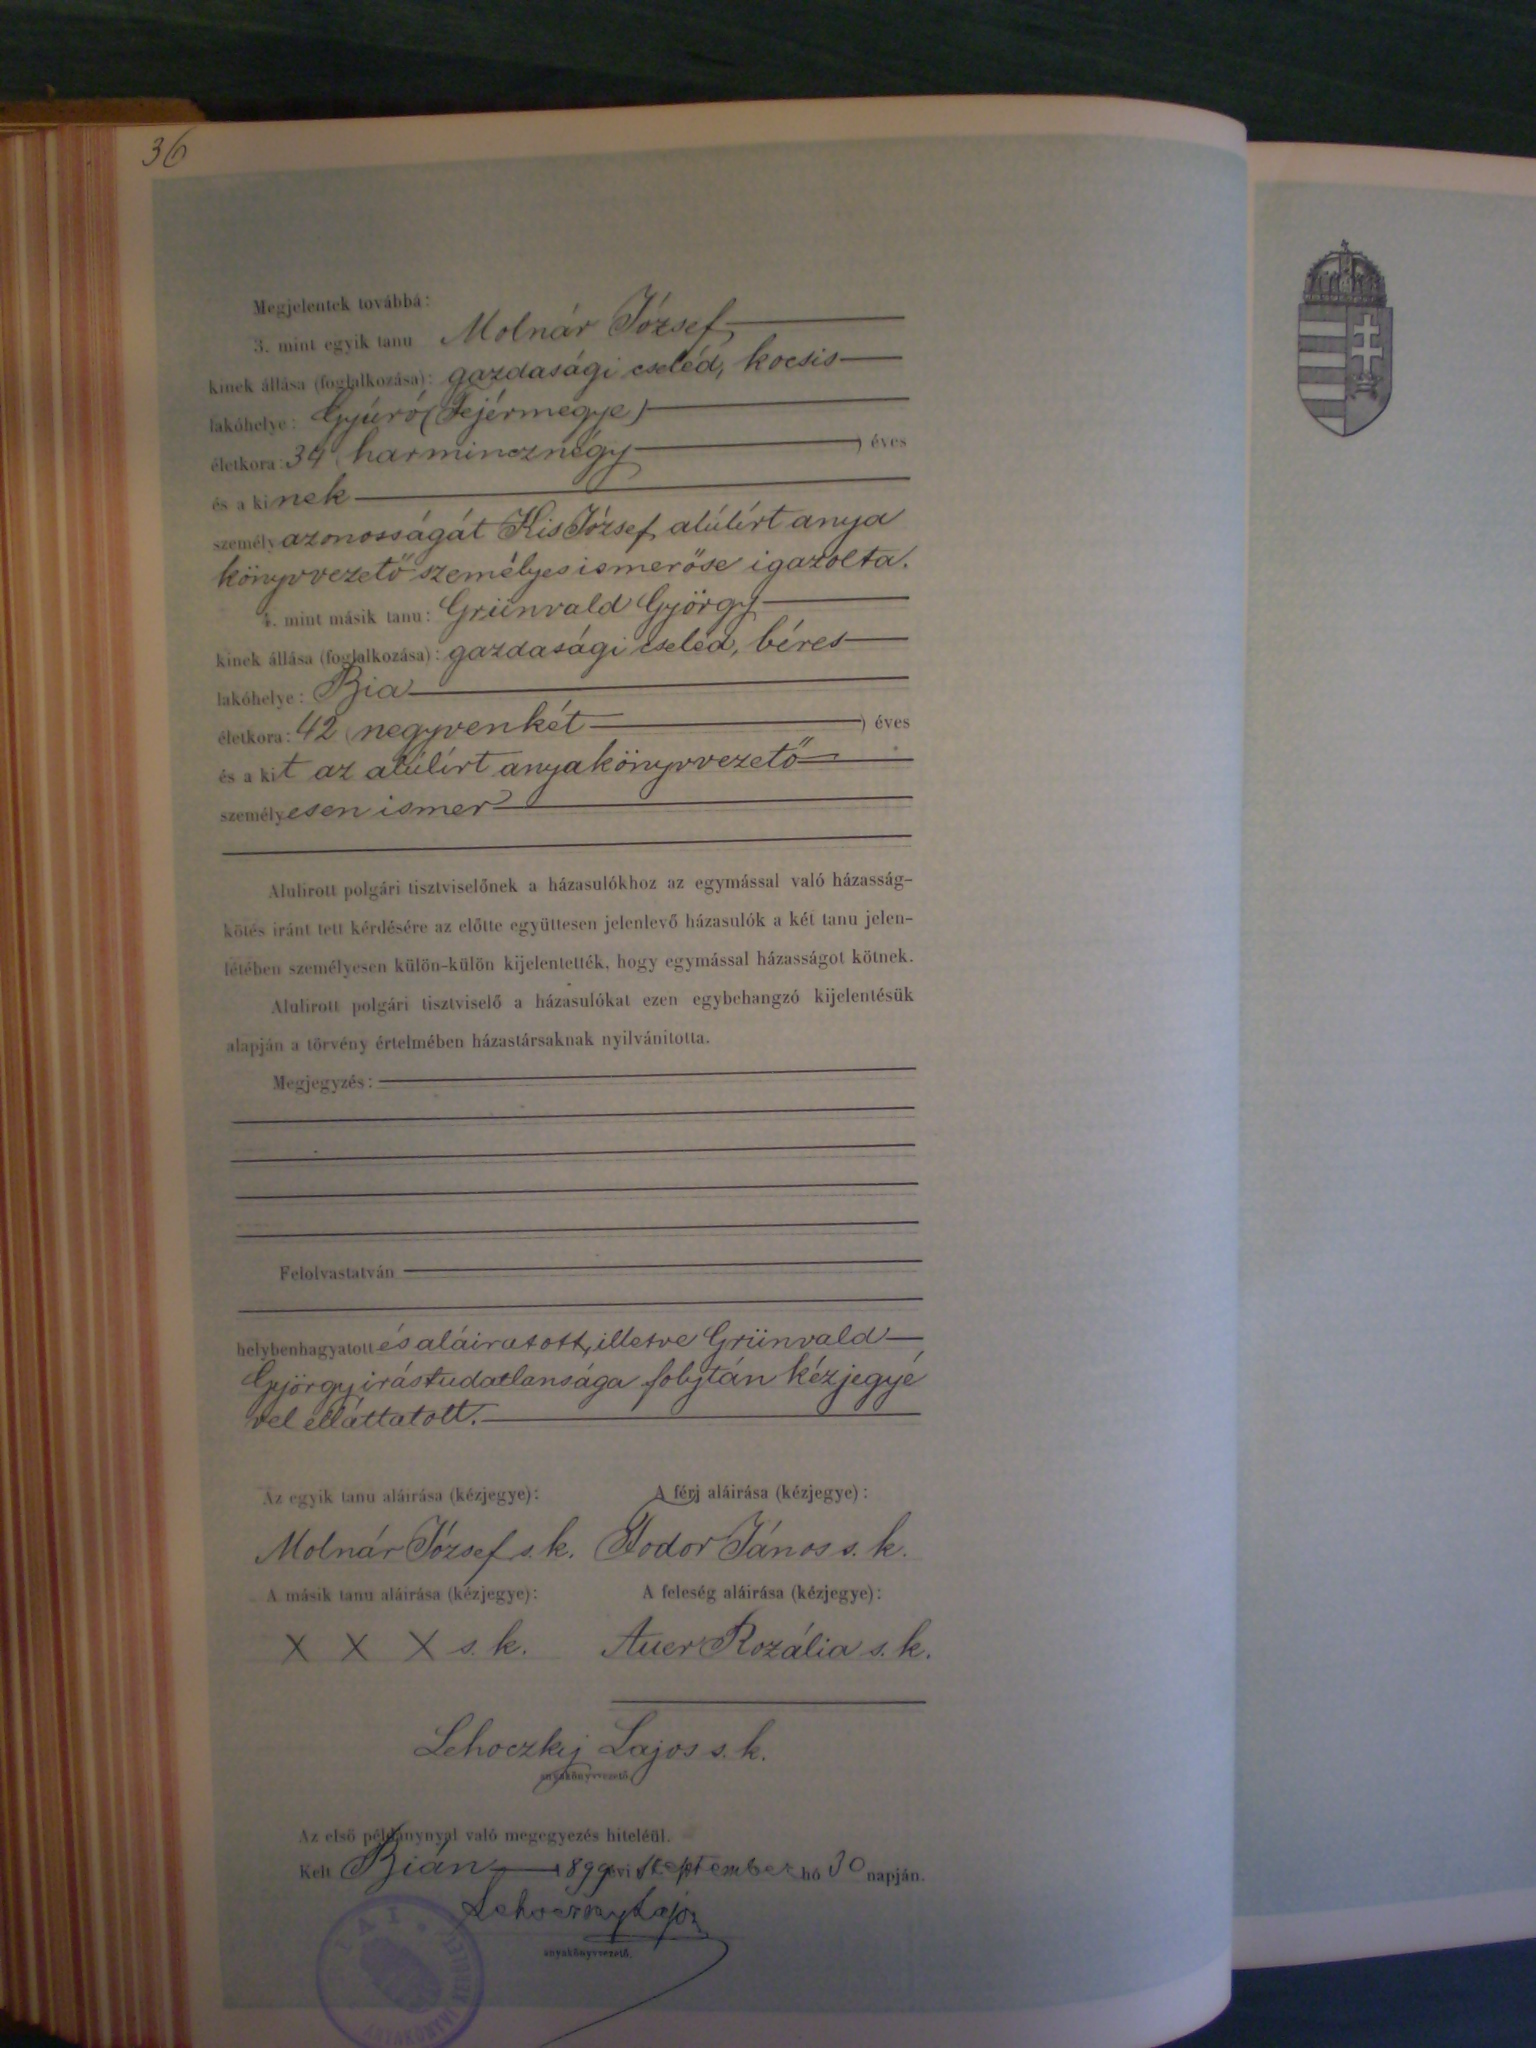 36
Megjelentek továbbá:
3. mint egyik tanu Molnár József
kinek állása (foglalkozása): gazdasági cseléd, kocsis
lakóhelye: Gyúró (Fejérmegye)
életkora: 34 (harmincznégy) éves
és a kinek
személyazonosságát Kis József, alúlírt anya
könyvvezető személyes ismerőse igazolta.
4. mint másik tanu: Grünvald György
kinek állása (foglalkozása): gazdasági cseléd, béres
lakóhelye: Bia
életkora: 42 (negyvenkét) éves
és a kit az alúlírt anyakönyvvezető
személyesen ismer
Alulirott polgári tisztviselőnek a házasulókhoz az egymással való házasság-
kötés iránt tett kérdésére az előtte együttesen jelenlevő házasulók a két tanu jelen-
létében személyesen külön-külön kijelentették, hogy egymással házasságot kötnek.
Alulirott polgári tisztviselő a házasulókat ezen egybehangzó kijelentésük
alapján a törvény értelmében házastársaknak nyilvánitotta.
Megjegyzés:
Felolvastatván
helybenhagyatott és aláiratott, illetve Grünvald
György irástudatlansága folytán kézjegyé
vel elláttatott.
Az egyik tanu aláirása (kézjegye): A férj aláirása (kézjegye):
Molnár József s. k. Fodor János s. k.
A másik tanu aláirása (kézjegye): A feleség aláirása (kézjegye):
X X X s. k. Auer Rozália s. k.
Lehoczky Lajos s. k.
anyakönyvvezető.
Az első példánynyal való megegyezés hiteléül.
Kelt Bián 1899 évi szeptember hó 30 napján.
Lehoczky Lajos
anyakönyvvezető.